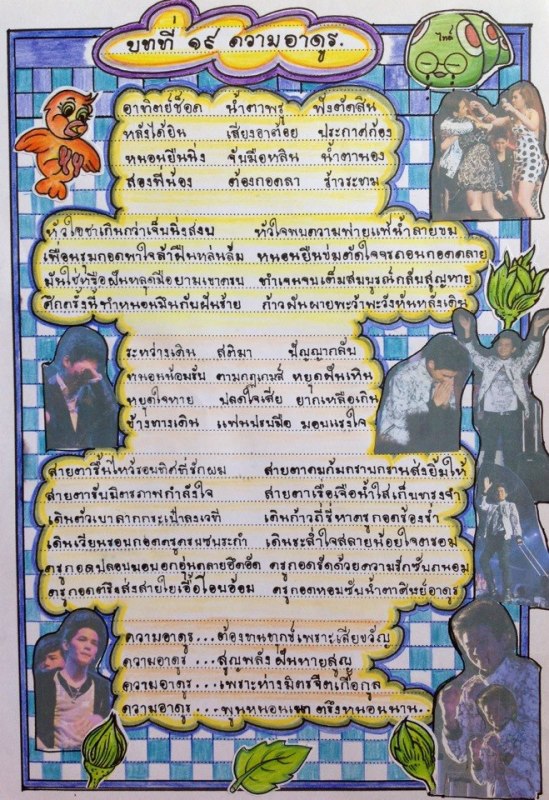 บทที่ ๑๙ ความอาดูร.
ไทด์
อาทิตย์ช็อค น้ำตาพรู พึ่งตัดสิน
หลังได้ยิน เสียงอาต้อย ประกาศก้อง
หนอนยืนนิ่ง จับมือหลิน น้ำตานอง
สองพี่น้อง ต้องกอดลา ร่ำระงม
หัวใจชาเกินกว่าเจ็บนิ่งสงบ หัวใจพบความพ่ายแพ้น้ำลายขม
เพื่อนรุมกอดทำใจล้าฝืนหล่นล้ม หนอนยืนข่มตัดใจจรถอนกอดคลาย
มันใช่หรือฝันหลุดมือยามเขาครบ ทำเจนจบเต็มสมบูรณ์กลับสูญหาย
อีกครั้งที่ทำหนอนมึนกับฝันร้าย ก้าวผันผายพะว้าพะวังหันหลังเดิน
ระหว่างเดิน สติมา ปัญญากลับ
หนอนน้อมรับ ตามกฎเกมส์ หยุดฝันเหิน
หยุดใจหาย ปลดใจเสีย ยากเหลือเกิน
ข้างทางเดิน แฟนปรบมือ มอบแรงใจ
สายตารื้นไหว้รอบทิศที่รักผม สายตาคมก้มกราบกรานส่งยิ้มให้
สายตารับมิตรภาพกำลังใจ สายตาเรือเจือน้ำใสเก็บทรงจำ
เดินตัวเบาลากกระเป๋าลงเวที เดินก้าวถี่รี่หาครูกอดร้องร่ำ
เดินเวียนรอบกอดครูครบซบระกำ เดินระส่ำใจสลายน้อยใจตรอม
ครูกอดปลอบมอบอกอุ่นคลายอึดอัด ครูกอดรัดด้วยความรักซับถนอม
ครูกอดตรึงส่งสายใยเอื้อโอบอ้อม ครูกอดหอมซับน้ำตาศิษย์อาดูร
ความอาดูร...ต้องทนทุกข์เพราะเสียขวัญ
ความอาดูร...สูญพลังฝันหายสูญ
ความอาดูร...เพราะห่างมิตรจิตเกื้อกูล
ความอาดูร...พูนหนอน ตรึงหนอนนาน..